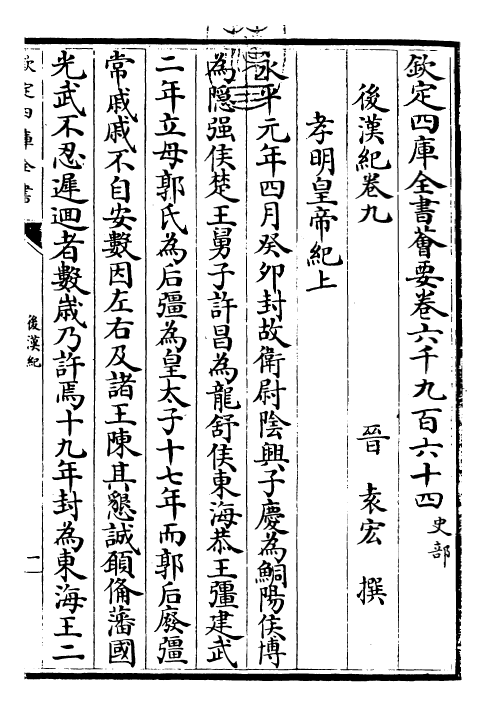 欽定四庫全書薈要卷六千九百六十四 史部
後漢紀卷九 晉 袁宏 撰
孝明皇帝紀上
永平元年四月癸卯封故衛尉陰興子慶為鮦陽侯博
為隠强侯楚王舅子許昌為龍舒侯東海恭王彊建武
二年立母郭氏為后彊為皇太子十七年而郭后廢彊
常戚戚不自安數因左右及諸王陳其懇誠願備藩國
光武不忍遲迴者數歲乃許焉十九年封為東海王二
欽定四庫全書
後漢紀
一